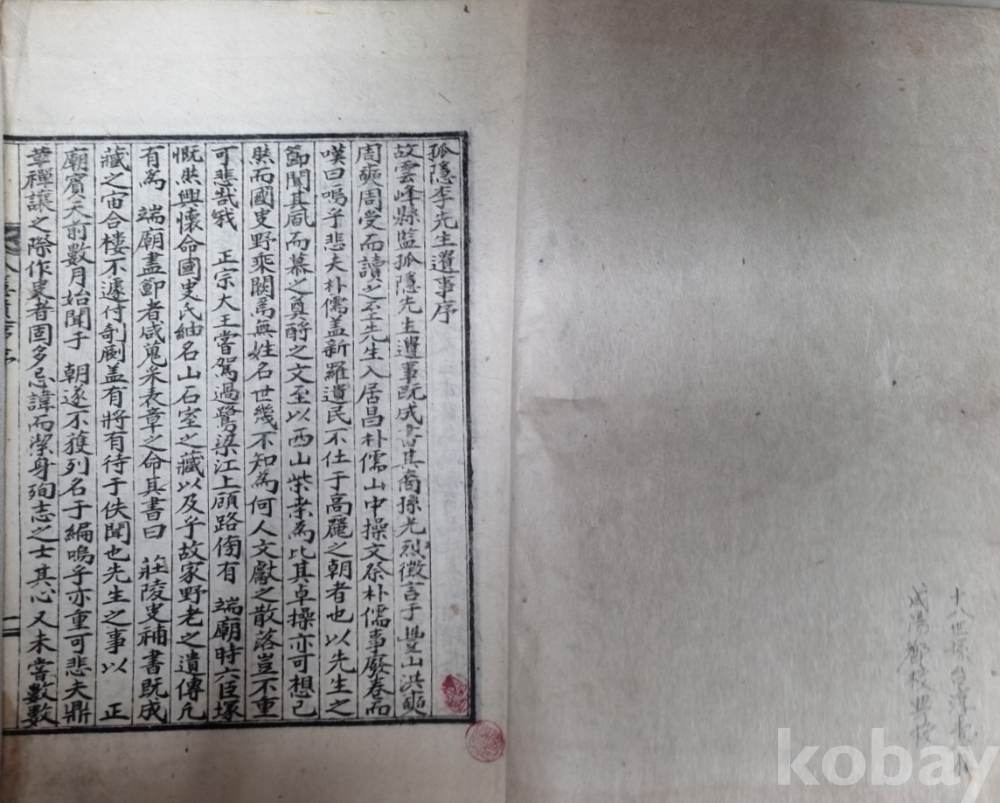 孤隱李先生遺事序
故雲峰縣監孤隱先生遺事旣成書其裔孫光烈徵言于豊山洪奭
周奭周受而讀之至先生入居昌朴儒山中操文祭朴儒事廢卷而
嘆曰嗚乎悲夫朴儒盖新羅遺民不仕于高麗之朝者也以先生之
節聞其風而慕之奠酹之文至以西山柴桑爲比其卓操亦可想已
然而國史野乘闕焉無姓名世幾不知爲何人文獻之散落豈不重
可悲哉我 正宗大王嘗駕過鷺梁江上顧路傍有 端廟時六臣塚
慨然興懷命國史氏紬名山石室之藏以及乎故家野老之遺傳凡
有爲 端廟盡節者咸蒐采表章之命其書曰 莊陵史補書旣成
藏之宙合樓不遽付剞劂盖有將有待于佚聞也先生之事以 正
廟賓天前數月始聞于 朝遂不獲列名于編嗚乎亦重可悲夫鼎
革禪讓之際作史者固多忌諱而潔身殉志之士其心又未嘗數數
十八世孫
kobay